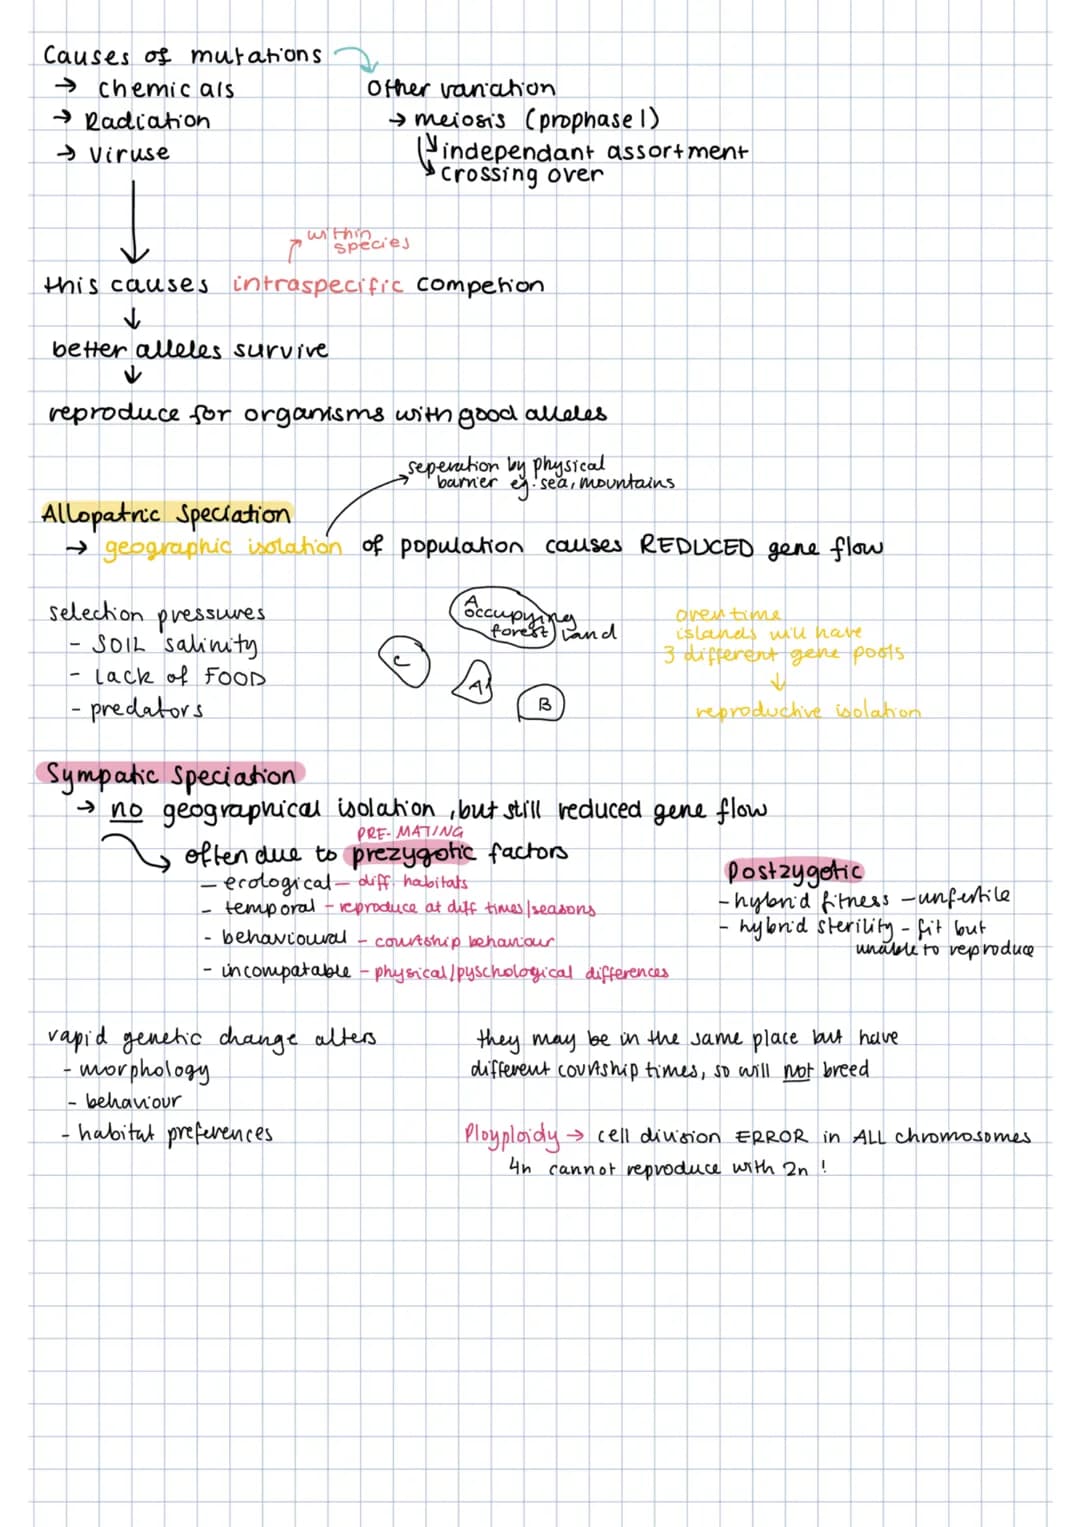 Causes of mutations
→ chemicals
→ Radiation
→ Viruse
Other variation
→ meiosis (prophase 1)
independant assortment
crossing over
within
species
this causes intraspecific competion
↓
better alleles survive
↓
reproduce for organisms with good alleles
seperation by physical
barrier eg. sea, mountains
Allopatric Speciation
→ geographic isolation of population causes REDUCED gene flow
selection pressures
- SOIL salinity
- Lack of FOOD
- predators
A
occupying
forest land
C
A
B
over time
islands will have
3 different gene pools
↓
reproductive isolation
Sympatic Speciation
→ no geographical isolation, but still reduced gene flow
PRE-MATING
often due to prezygotic factors
- ecological - diff. habitats
- temporal - reproduce at diff times/seasons
- behavioural - courtship behaviour
- incompatable - physical/pyschological differences
Postzygotic
- hybrid fitness - unfertile
- hybrid sterility - fit but
unable to reproduce
rapid genetic change alters
- morphology
- behaviour
- habitat preferences
they may be in the same place but have
different courtship times, so will not breed
Ployploidy → cell division ERROR in ALL chromosomes
4n cannot reproduce with 2n !